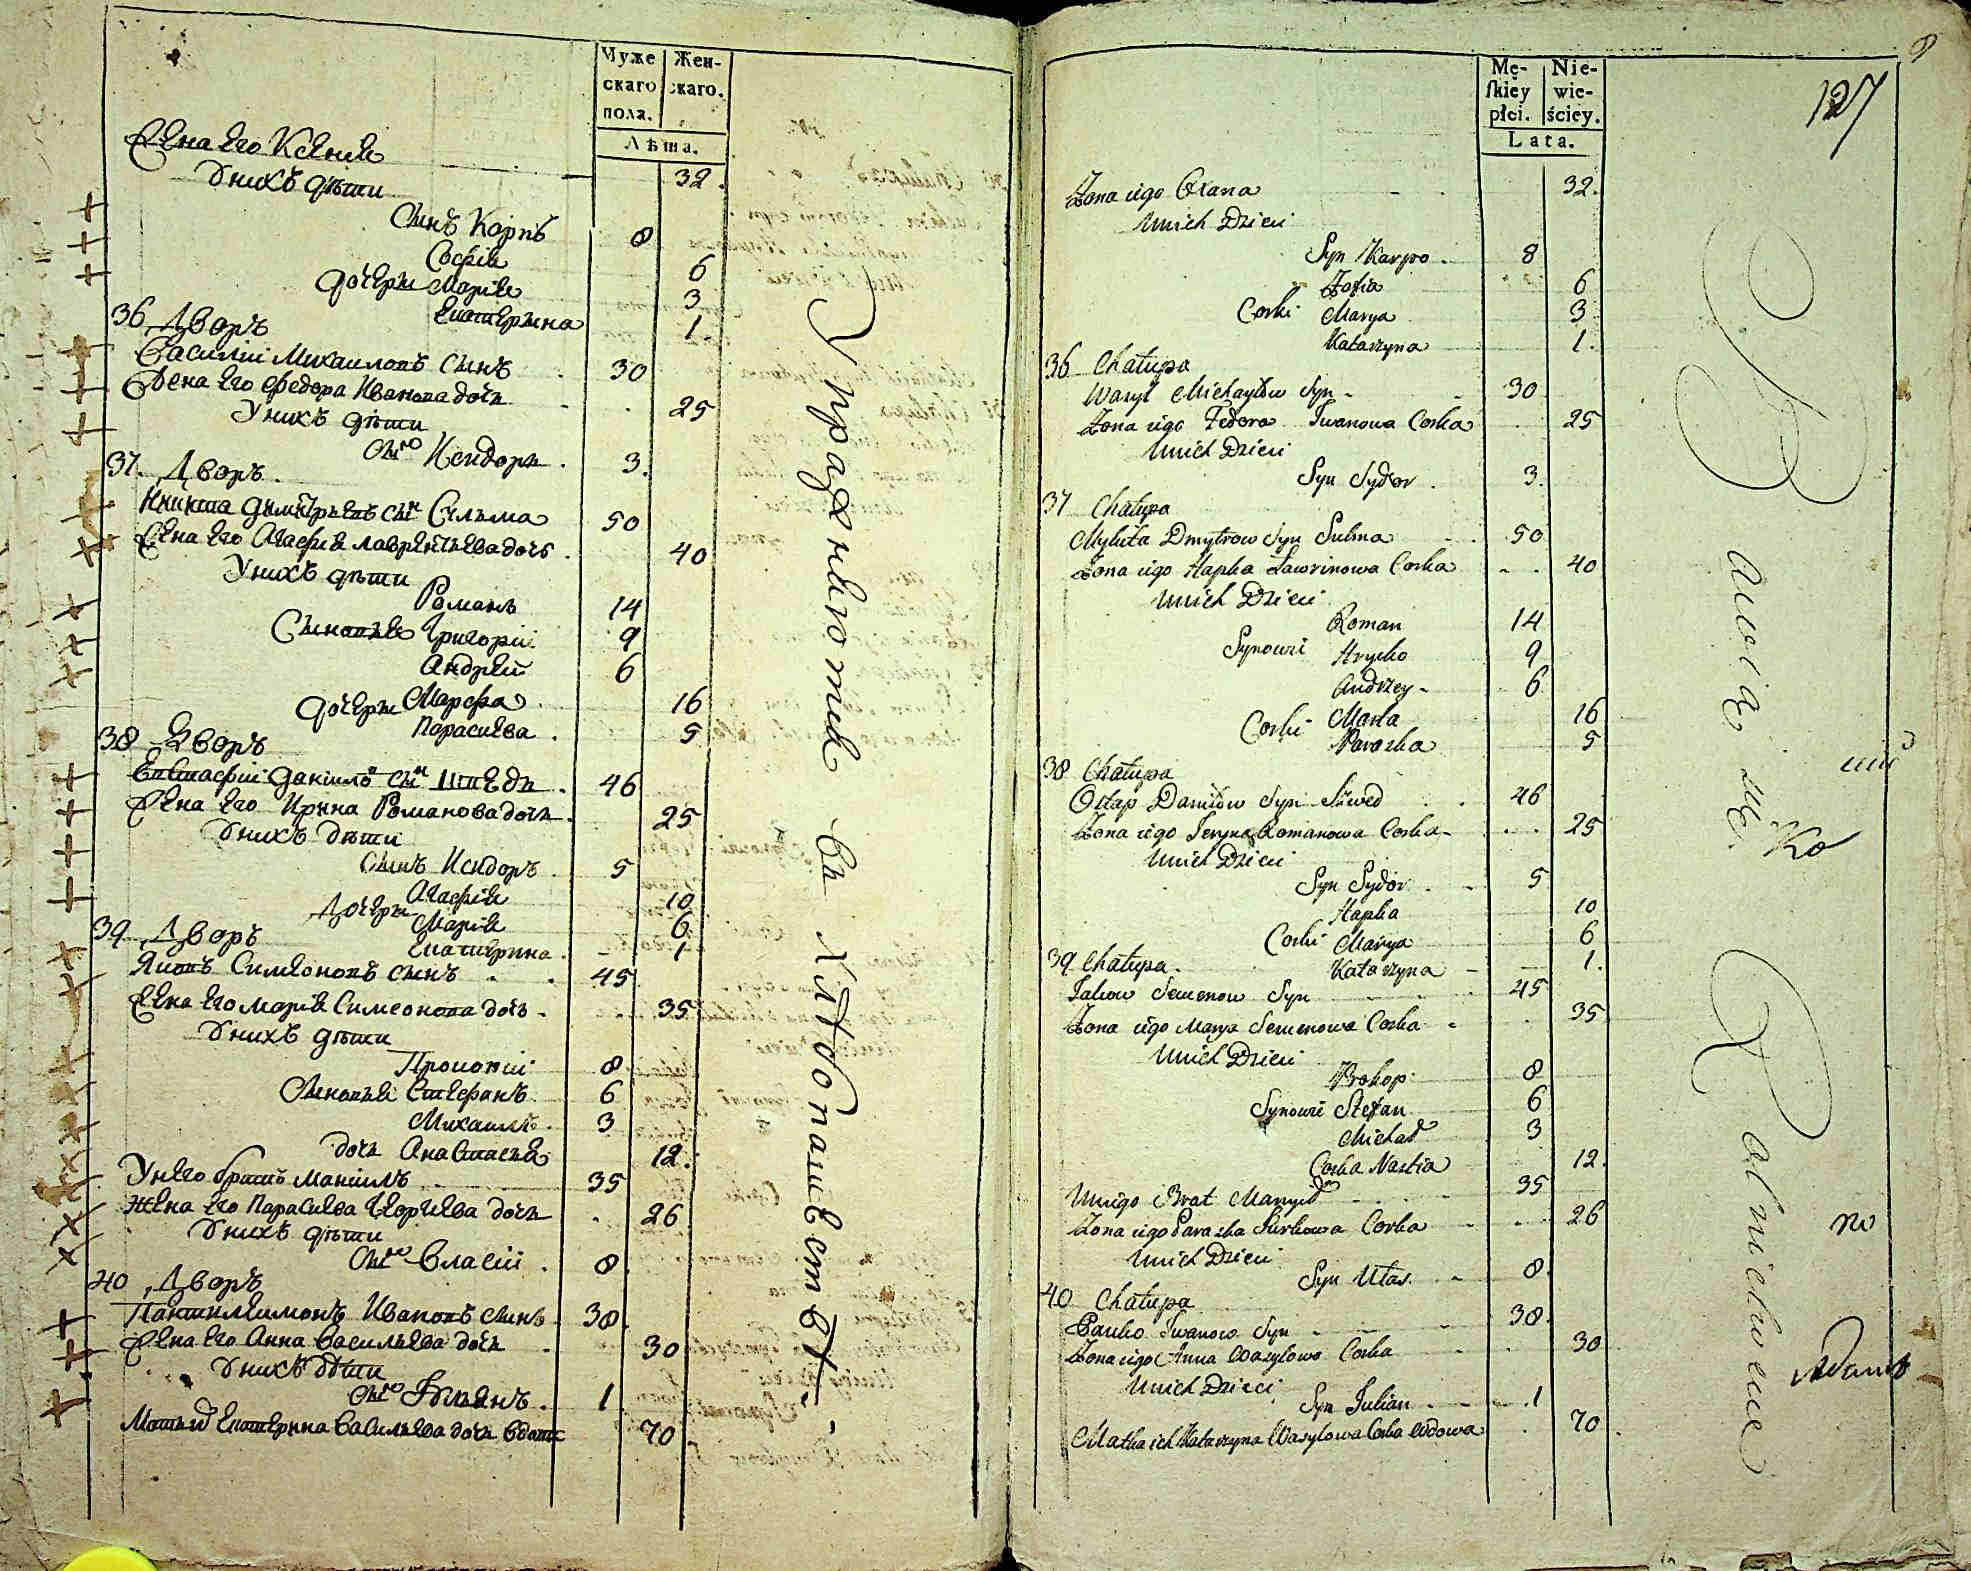 Муже
скаго
пола.
Жен-
скаго.
Лѣта.
Жена его Ксенія 32.
У нихъ дѣти
Сынъ Карпъ 8
Софія 6
дочери Марія 3
Екатерина 1.
36 Дворъ
Василій Михаиловъ сынъ 30
Жена его Федора Иванова дочь 25
У нихъ дѣти
Сынъ Исидоръ. 3.
37. Дворъ.
Никита Димитріевъ сынъ Сулима 50
Жена его Агафія Лаврентьева дочь 40
У нихъ дѣти
Романъ 14
Сыновья Григорій 9
Андрей 6
дочери Марфа 16
Параскева. 5
38 Дворъ
Евстафій Даніиловъ сынъ Шведъ. 46
Жена его Ирина Романова дочь. 25
У нихъ дѣти
Сынъ Исидоръ 5
Агафія 10
Дочери Марія 6
Екатерина. 1
39 Дворъ
Яковъ Симеоновъ сынъ 45
Жена его Марія Симеонова дочь 35
У нихъ дѣти
Прокопій 8
Сыновья Стефанъ 6
Михаилъ. 3
дочь Анастасія 12.
У него братъ Мануилъ 35
Жена его Параскева Георгіева дочь 26
У нихъ дѣти
Сынъ Власій. 8
40 Дворъ
Пантилеимонъ Ивановъ сынъ 38.
Жена его Анна Васильева дочь 30
У нихъ дѣти
Сынъ Іуліянъ. 1
Мать их Екатерина Васильева дочь вдова 70
Упражняются въ хлѣбопашествѣ.
Mę-
skiey
płci.
Nie-
wie-
ściey.
Lata.
127
Żona iego Oxana 32.
U nich Dzieci
Syn Karpo 8
Zofia 6
Corki Marya 3
Katarzyna 1.
36 Chałupa
Wasyl Michayłow Syn 30
Żona iego Fedora Iwanowa Corka 25
U nich Dzieci
Syn Sydor 3.
37 Chałupa
Mykita Dmytrow Syn Sulima 50
Żona iego Hapka Ławrinowa Corka 40
U nich Dzieci
Roman 14
Synowie Hrycko 9
Andrzey 6
Corki Marta 16
Paraska 5
38 Chałupa
Ostap Daniłow Syn Szwed 46
Żona iego Jeryna Romanowa Corka 25
U nich Dzieci
Syn Sydor 5
Hapka 10
Corki Marya 6
Katarzyna 1.
39 Chałupa.
Jakow Semenow Syn 45
Żona iego Marya Semenowa Corka 35
U nich Dzieci
Prokop 8
Synowie Stefan 6
Michał 3
Corka Nastia 12.
U niego Brat Manuył 35
Żona iego Paraska Jurkowa Corka 26
U nich Dzieci
Syn Ułas. 8.
40 Chałupa
Panko Iwanow Syn 38.
Żona iego Anna Wasylowa Corka 30
U nich Dzieci
Syn Julian 1
Matka ich Katarzyna Wasylowa Corka Wdowa 70
Bawią się Rolnictwem